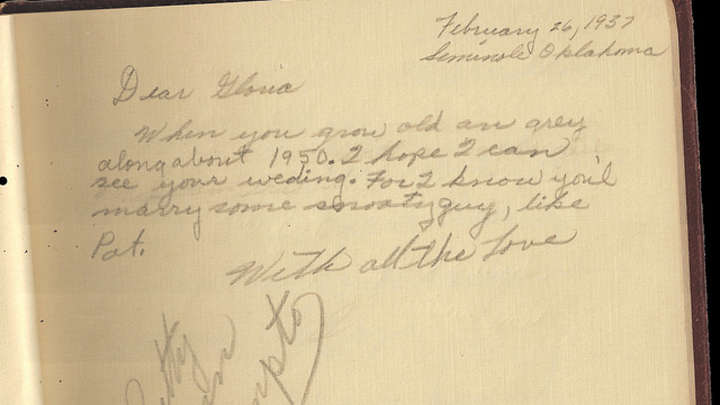 February 26, 1937
Seminole Oklahoma
Dear Gloria
When you grow old an grey
along about 1950. I hope I can
see your weding. For I know you'l
marry some snooty guy, like
Pat.
With all the Love